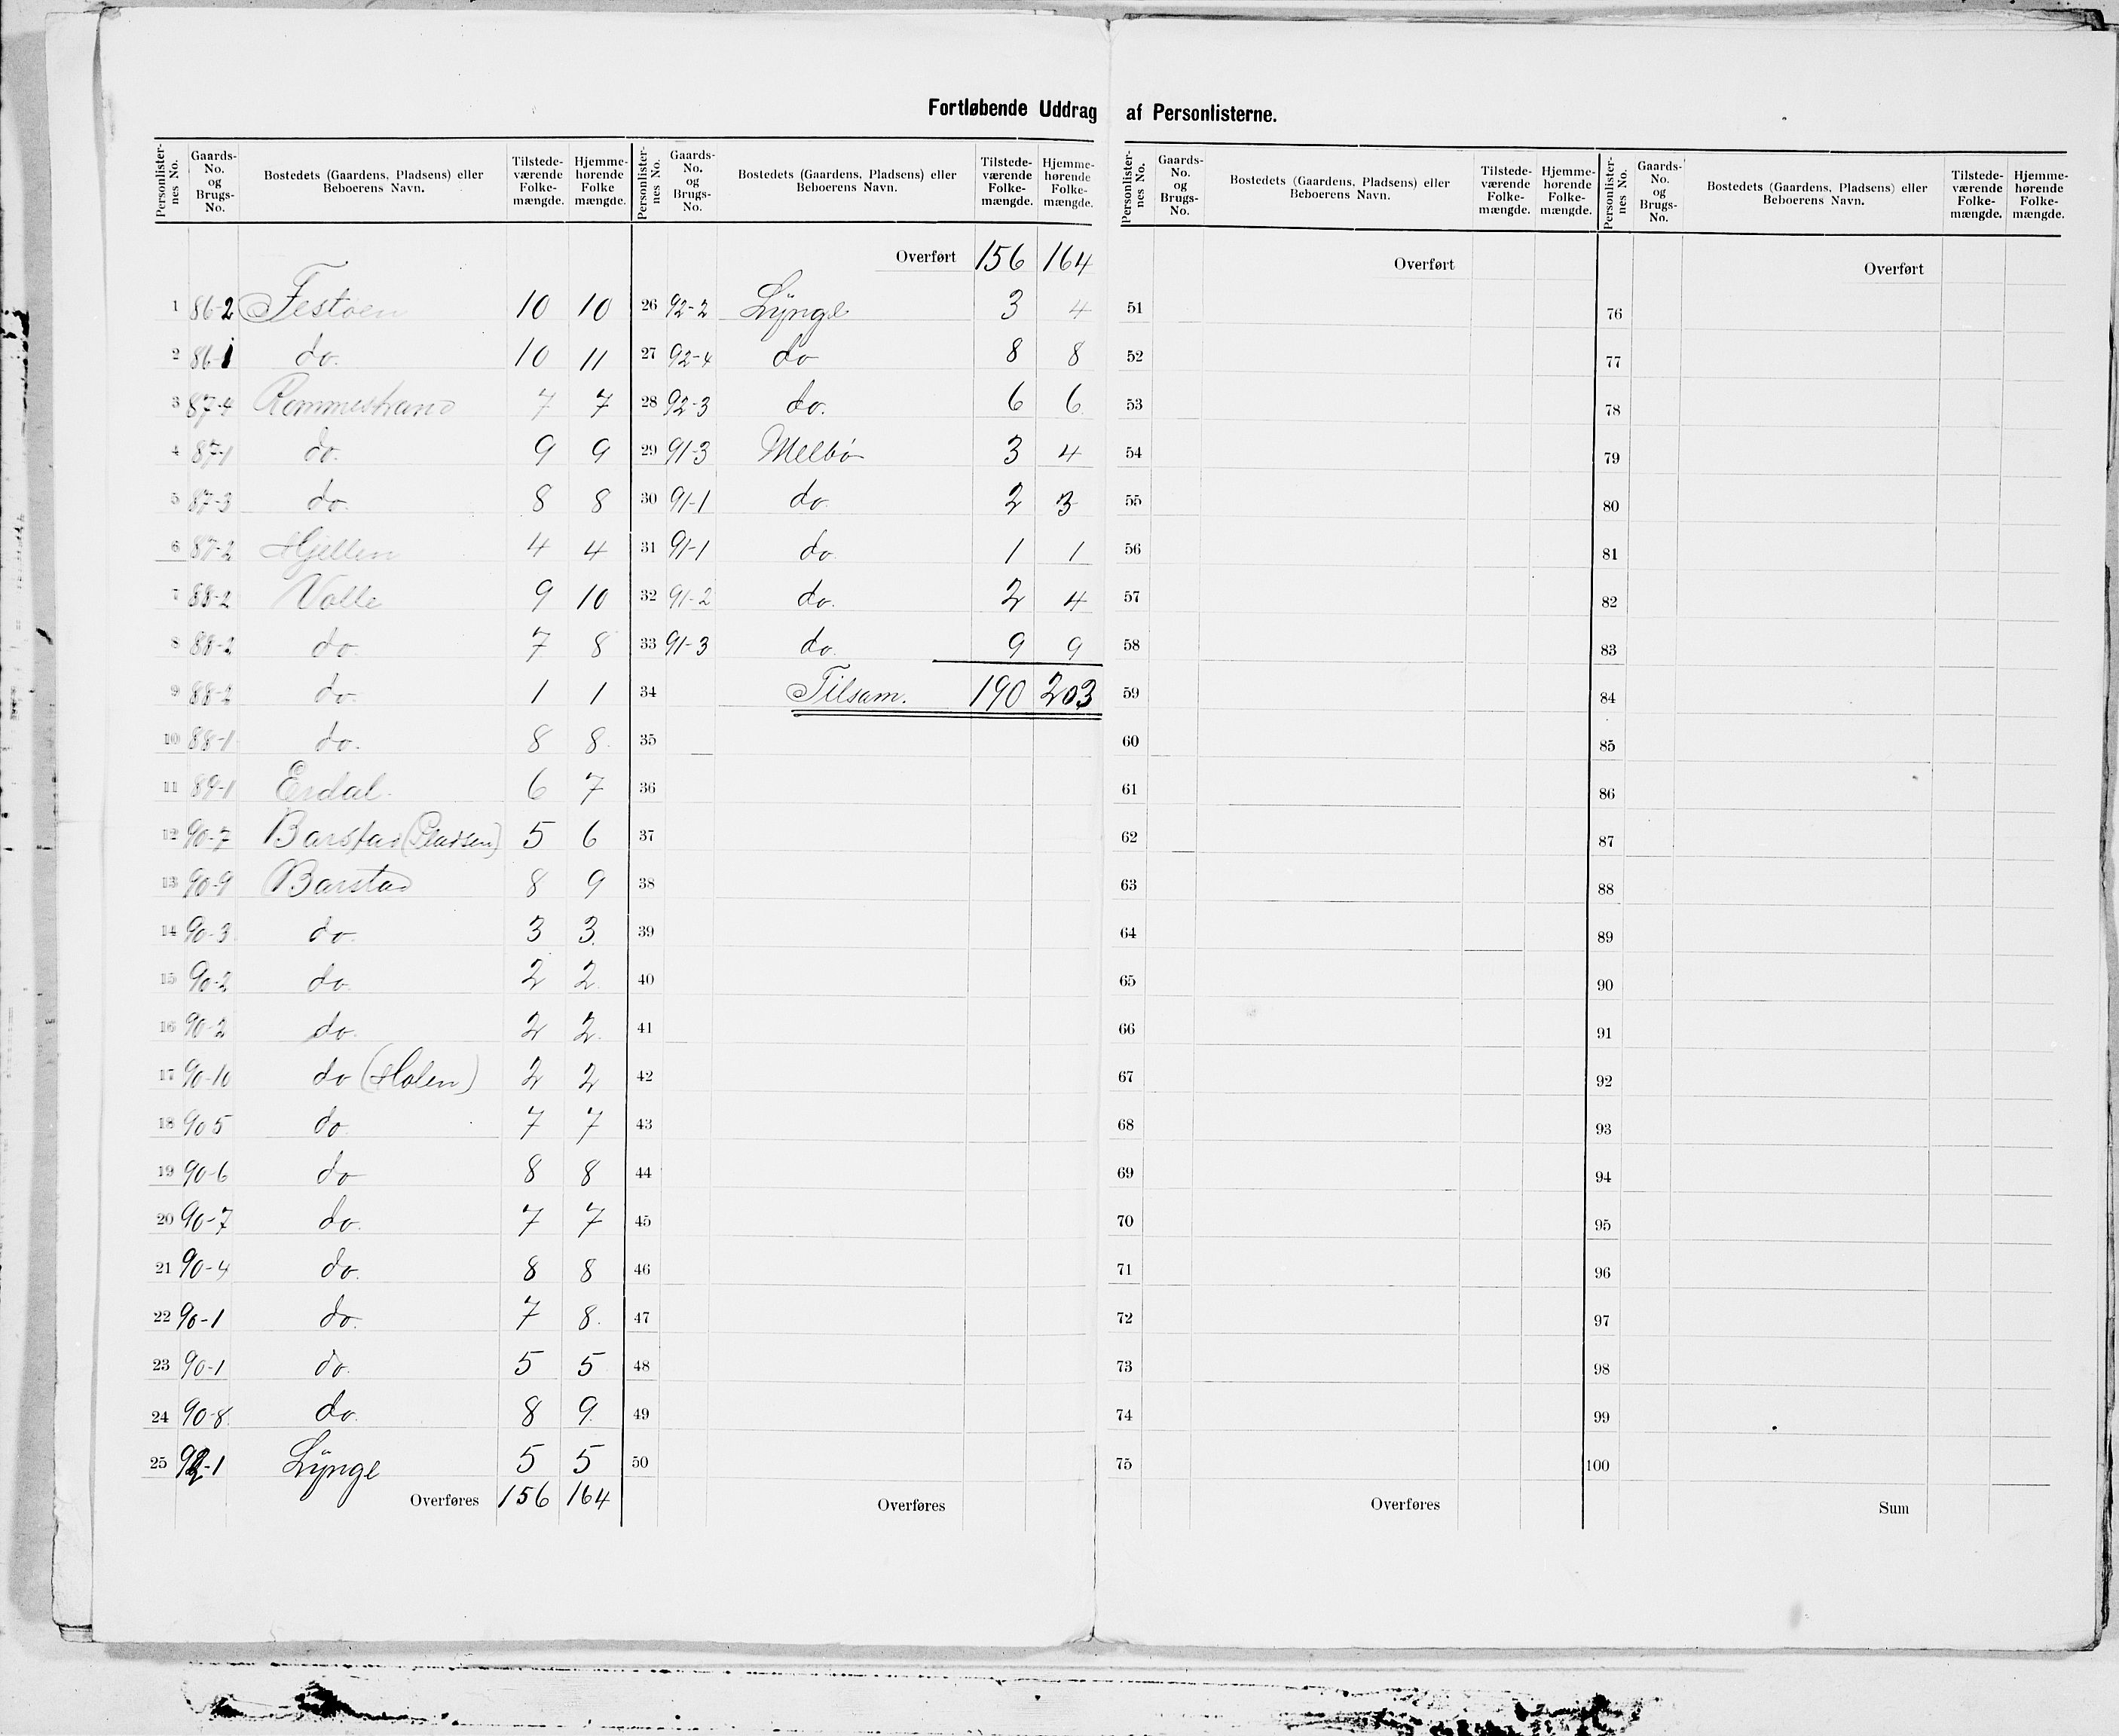 Fortløbende Uddrag af Personlisterne.
Personlisternes No. Gaards-No. og Brugs-No. Bostedets (Gaardens, Pladsens) eller Beboerens Navn. Tilstedeværende Folkemængde. Hjemmehørende Folkemængde.
1 86-2 Festøen 10 10
2 86-1 do. 10 11
3 87-4 Rommestrand 7 7
4 87-1 do. 9 9
5 87-3 do. 8 8
6 87-2 Hjellen 4 4
7 88-2 Valle 9 10
8 88-2 do. 7 8
9 88-2 do. 1 1
10 88-1 do. 8 8
11 89-1 Erdal. 6 7
12 90-7 Barstad (Pladsen) 5 6
13 90-9 Barstad 8 9
14 90-3 do. 3 3
15 90-2 do. 2 2
16 90-2 do. 2 2
17 90-10 do (Holen) 2 2
18 90 5 do 7 7
19 90-6 do 8 8
20 90-7 do. 7 7
21 90-4 do. 8 8
22 90-1 do. 7 8
23 90-1 do. 5 5
24 90-8 do. 8 9
25 92-1 Lÿnge 5 5
Overføres 156 164
Personlisternes No. Gaards-No. og Brugs-No. Bostedets (Gaardens, Pladsens) eller Beboerens Navn. Tilstedeværende Folkemængde. Hjemmehørende Folkemængde.
Overført 156 164
26 92-2 Lÿnge 3 4
27 92-4 do 8 8
28 92-3 do. 6 6
29 91-3 Melbø 3 4
30 91-1 do. 2 3
31 91-1 do. 1 1
32 91-2 do. 2 4
33 91-3 do. 9 9
34 Tilsam. 190 203
35
36
37
38
39
40
41
42
43
44
45
46
47
48
49
50
Overføres
Personlisternes No. Gaards-No. og Brugs-No. Bostedets (Gaardens, Pladsens) eller Beboerens Navn. Tilstedeværende Folkemængde. Hjemmehørende Folkemængde.
Overført
51
52
53
54
55
56
57
58
59
60
61
62
63
64
65
66
67
68
69
70
71
72
73
74
75
Overføres
Personlisternes No. Gaards-No. og Brugs-No. Bostedets (Gaardens, Pladsens) eller Beboerens Navn. Tilstedeværende Folkemængde. Hjemmehørende Folkemængde.
Overført
76
77
78
79
80
81
82
83
84
85
86
87
88
89
90
91
92
93
94
95
96
97
98
99
100
Sum